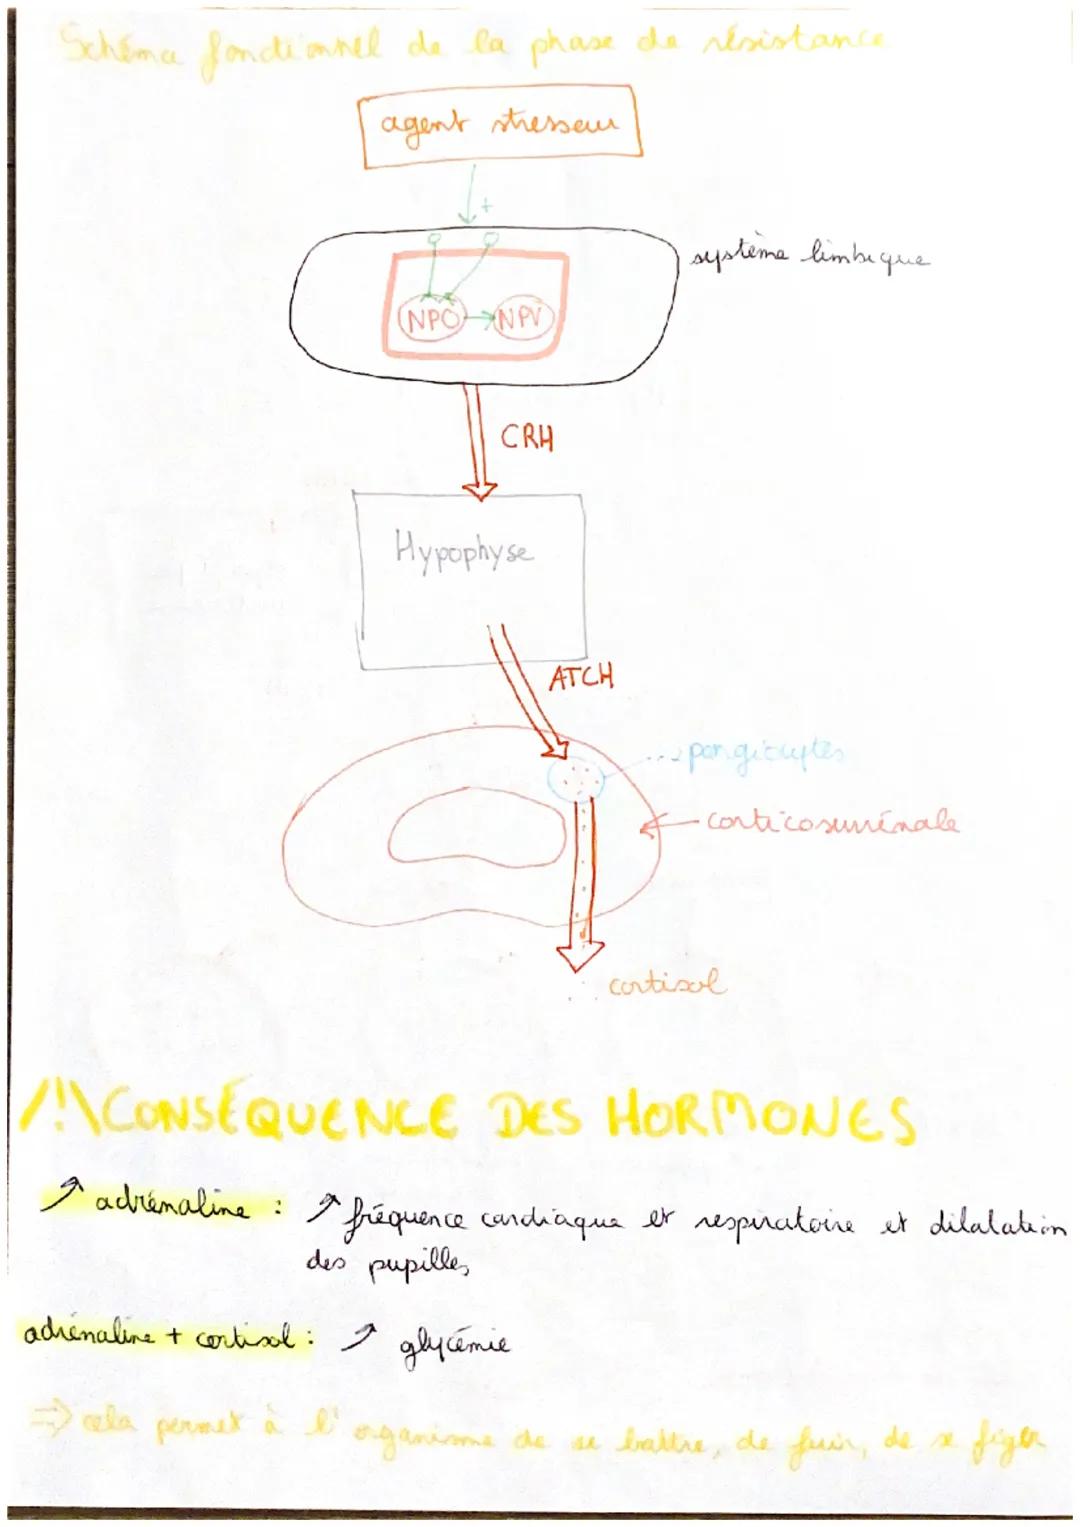 Schéma fonctionnel de la phase de résistance
agent stresseur
+
système limbique
NPO
NPV
CRH
Hypophyse
ATCH
pongiocytes
corticosurrénale
cortisol
/!\ CONSÉQUENCE DES HORMONES
↗ adrénaline : ↗ fréquence cardiaque et respiratoire et dilatation
des pupilles
adrénaline + cortisol : ↗ glycémie
=> cela permet à l'organisme de se battre, de fuir, de se figer